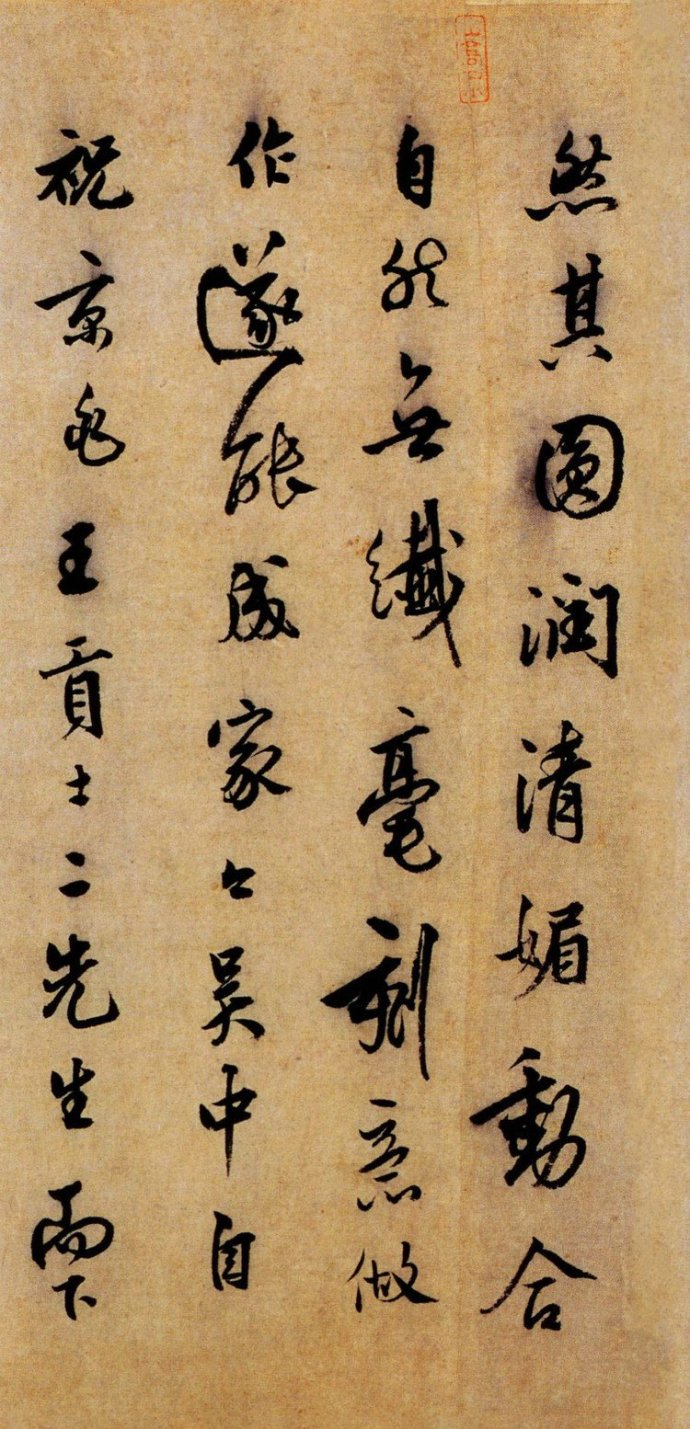 然其圓潤清媚動合
自然無纖毫刻意做
作遂能成家今吳中自
祝京兆王貢士二先生而下